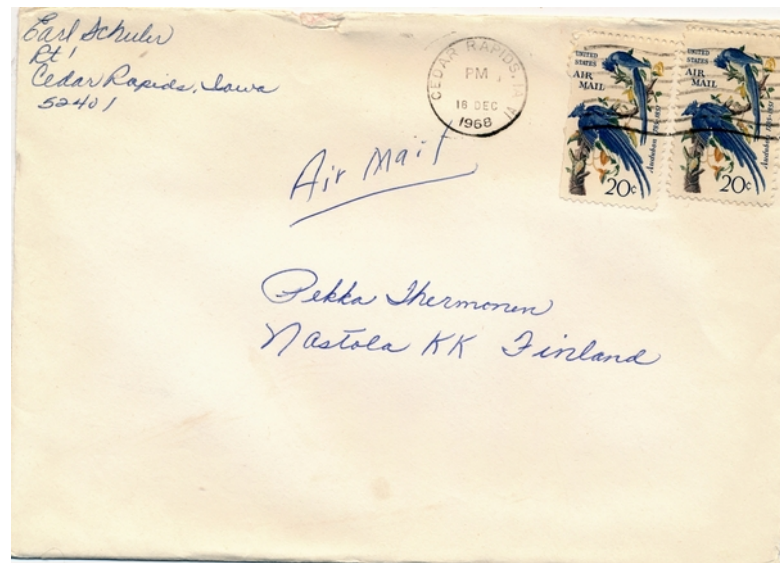 Earl Schuler
Rt 1
Cedar Rapids, Iowa
52401
CEDAR RAPIDS, IA
PM
16 DEC
1968
UNITED
STATES
AIR
MAIL
Audubon 1785-1851
20c
UNITED
STATES
AIR
MAIL
Audubon 1785-1851
20c
Air Mail
Pekka Thermonen
Nastola KK Finland